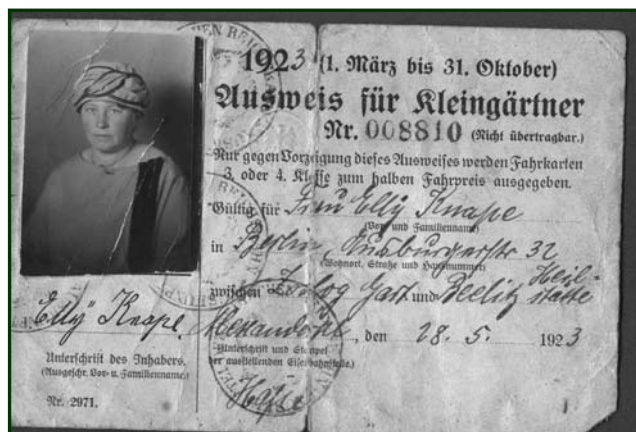 1923 (1. März bis 31. Oktober)
Ausweis für Kleingärtner
Nr. 008810 (Nicht übertragbar.)
Nur gegen Vorzeigung dieses Ausweises werden Fahrkarten
3. oder 4. Klasse zum halben Fahrpreis ausgegeben.
Gültig für Frau Elly Knape
(Vor- und Familienname)
in Berlin, 32
(Wohnort, Straße und Hausnummer)
zwischen Zoolog Gart und Beelitz Heil-
stätte
Elly Knape
, den 28. 5. 1923
Unterschrift des Inhabers.
(Ausgeschr. Vor- u. Familienname.)
Unterschrift und Stempel
der ausstellenden Eisenbahnstelle.)
Nr. 2971.